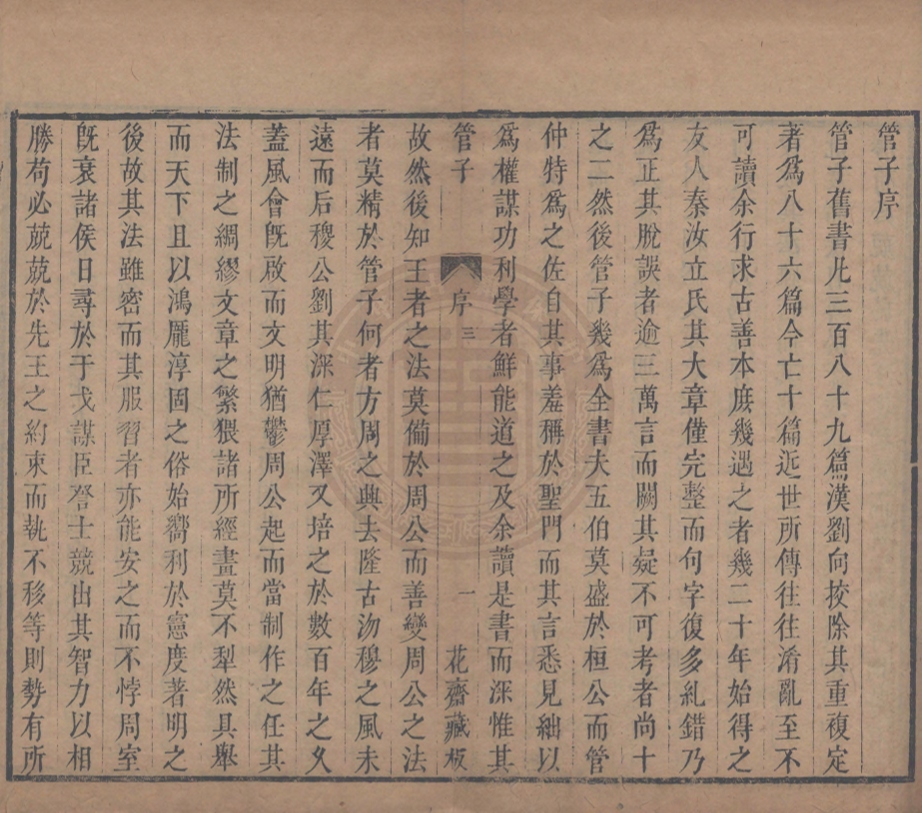 管子序
管子舊書凢三百八十九篇漢劉向挍除其重複定
著爲八十六篇今亡十篇近世所傳往往淆亂至不
可讀余行求古善本庻幾遇之者幾二十年始得之
友人秦汝立氏其大章僅完整而句字復多糺錯乃
爲正其脫誤者逾三萬言而闕其疑不可考者尚十
之二然後管子幾爲全書夫五伯莫盛於桓公而管
仲特爲之佐自其事羞稱於聖門而其言悉見絀以
爲權謀功利學者鮮能道之及余讀是書而深惟其
管子 序 三 一 花齋藏板
故然後知王者之法莫備於周公而善變周公之法
者莫精於管子何者方周之典去隆古沕穆之風未
遠而后稷公劉其深仁厚澤又培之於數百年之久
蓋風會既啟而文明猶鬱周公起而當制作之任其
法制之綢繆文章之繁猥諸所經畫莫不犁然具舉
而天下且以鴻厖淳固之俗始嚮利於憲度著明之
後故其法雖密而其服習者亦能安之而不悖周室
既衰諸侯日尋於于戈謀臣登士競出其智力以相
勝苟必兢兢於先王之約束而執不移等則勢有所